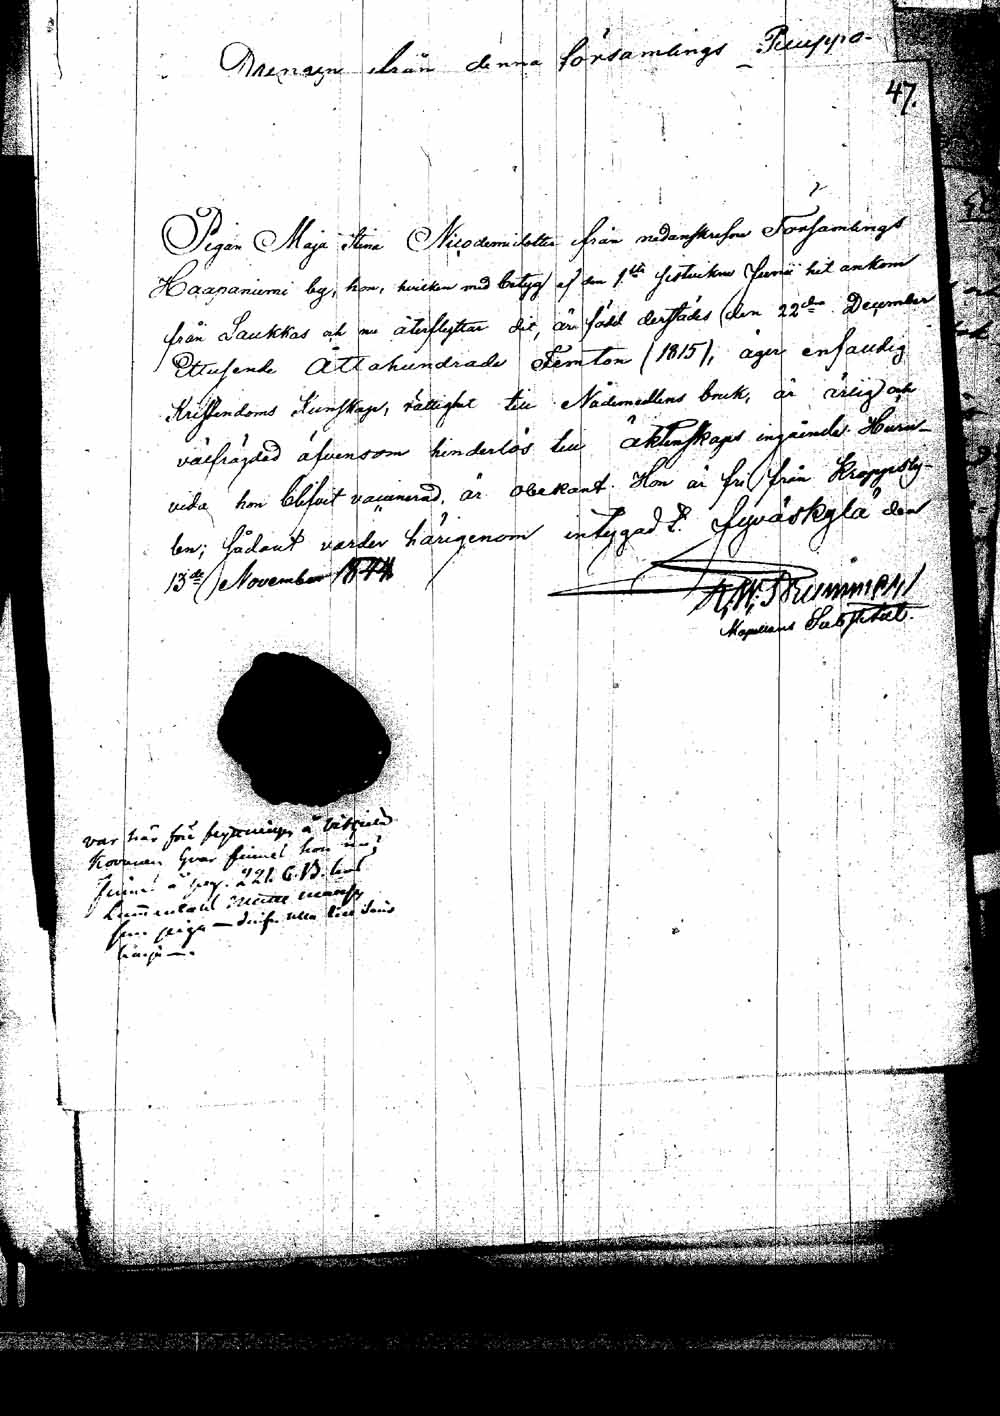 Drengen ifrån denna församlings Puuppo-
47.
Pigan Maja Stina Nicodemidotter från nedanskrefne Församlings
Haapaniemi by, hon, hvilken med betyg af den 1sta sistvikne hit ankom
från Laukkas och nu återflyttar dit, är född derstädes den 22dra December
Ettusende Åttahundrade Femton (1815), äger enfaldig
Kristendoms Kunskap, rättighet till Nådemedlens bruk, är ärlig och
välfrägdad äfvensom hinderlös till äktenskaps ingående. Huru-
vida hon blifvit vaccinerad, är obekant. Hon är fri från Kroppsly-
ten; sådant varder härigenom intygadt. Jyväskylä den
13de November 1844
Kapellans Substitut.
var här före flyttningen å
hvar finnes hon nu?
finnes å pag. 421. C.B. hos
som piga —